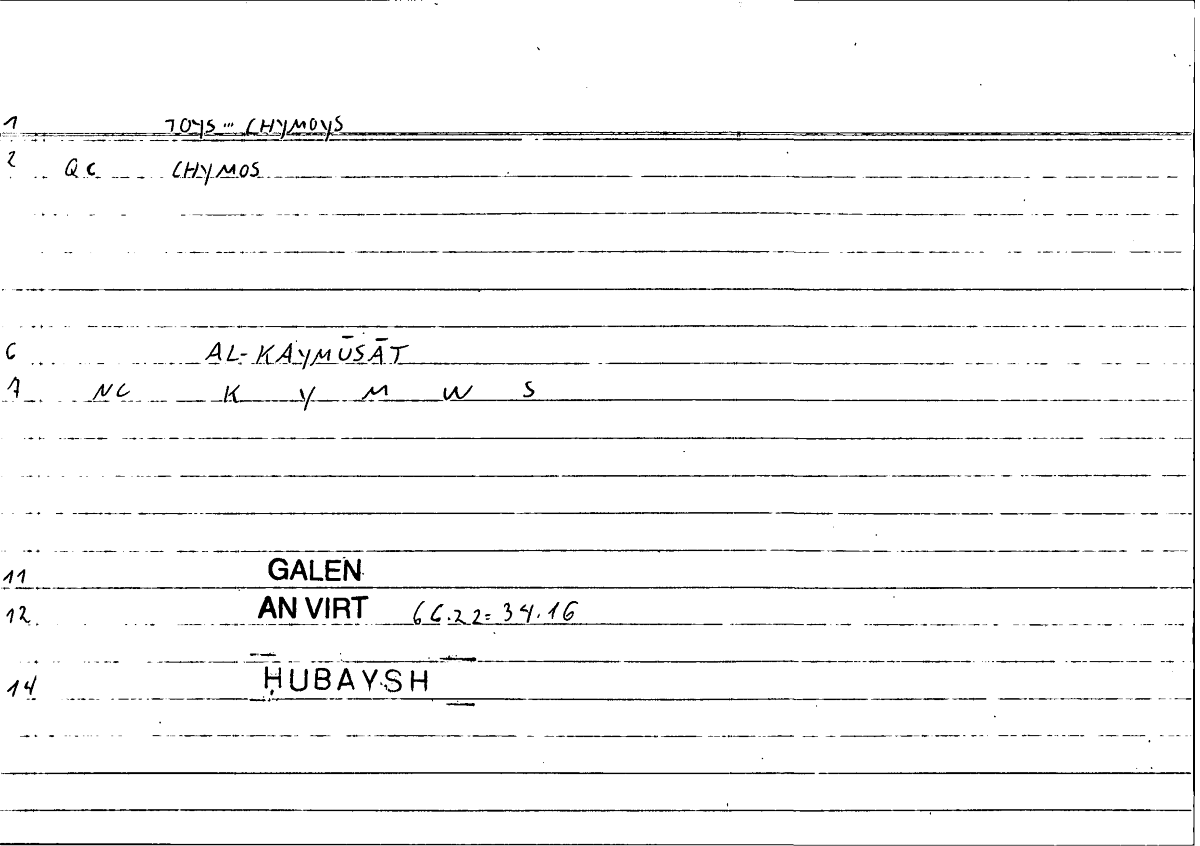 1 TOYS ... CHYMOYS
2 QC CHYMOS
6 AL-KAYMŪSĀT
7 NC K Y M W S
11 GALEN
12 AN VIRT 66.22=34.16
14 ḤUBAYSH